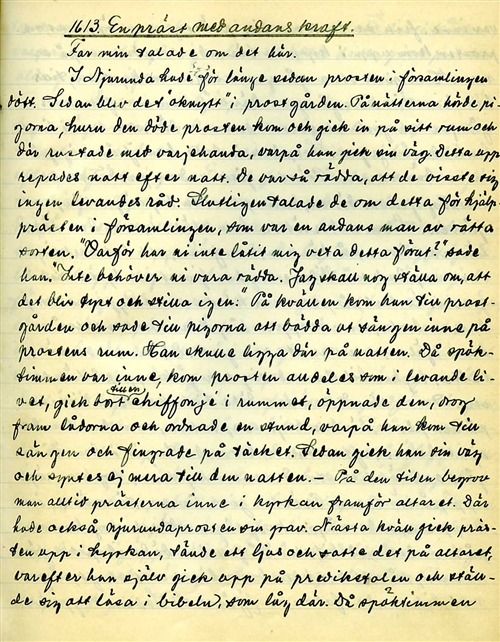 1613. En präst med andans kraft.
Far min talade om det här.
I Njurunda hade för länge sedan prosten i församlingen
dött. Sedan blev det "oknytt" i prostgården. På nätterna hörde pi-
gorna, huru den döde prosten kom och gick in på sitt rum och
där rustade med varjehanda, varpå han gick sin väg. Detta upp-
repades natt efter natt. De var så rädda, att de visste sig
ingen levandes råd. Slutligen talade de om detta för hjälp-
prästen i församlingen, som var en andans man av rätta
sorten. "Varför har ni inte låtit mig veta detta förut?" sade
han. "Inte behöver ni vara rädda. Jag skall nog ställa om, att
det blir tyst och stilla igen." På kvällen kom han till prost-
gården och sade till pigorna att bädda åt sängen inne på
prostens rum. Han skulle ligga där på natten. Då spök-
timmen var inne, kom prosten alldeles som i levande li-
vet, gick bort till en chiffonjé i rummet, öppnade den, drog
fram lådorna och ordnade en stund, varpå han kom till
sängen och fingrade på täcket. Sedan gick han sin väg
och syntes ej mera till den natten. – På den tiden begrov
man alltid prästerna inne i kyrkan framför altaret. Där
hade också njurundaprosten sin grav. Nästa kväll gick präs-
ten upp i kyrkan, tände ett ljus och satte det på altaret,
varefter han själv gick upp på predikstolen och ställ-
de sig att läsa i bibeln, som låg där. Då spöktimmen